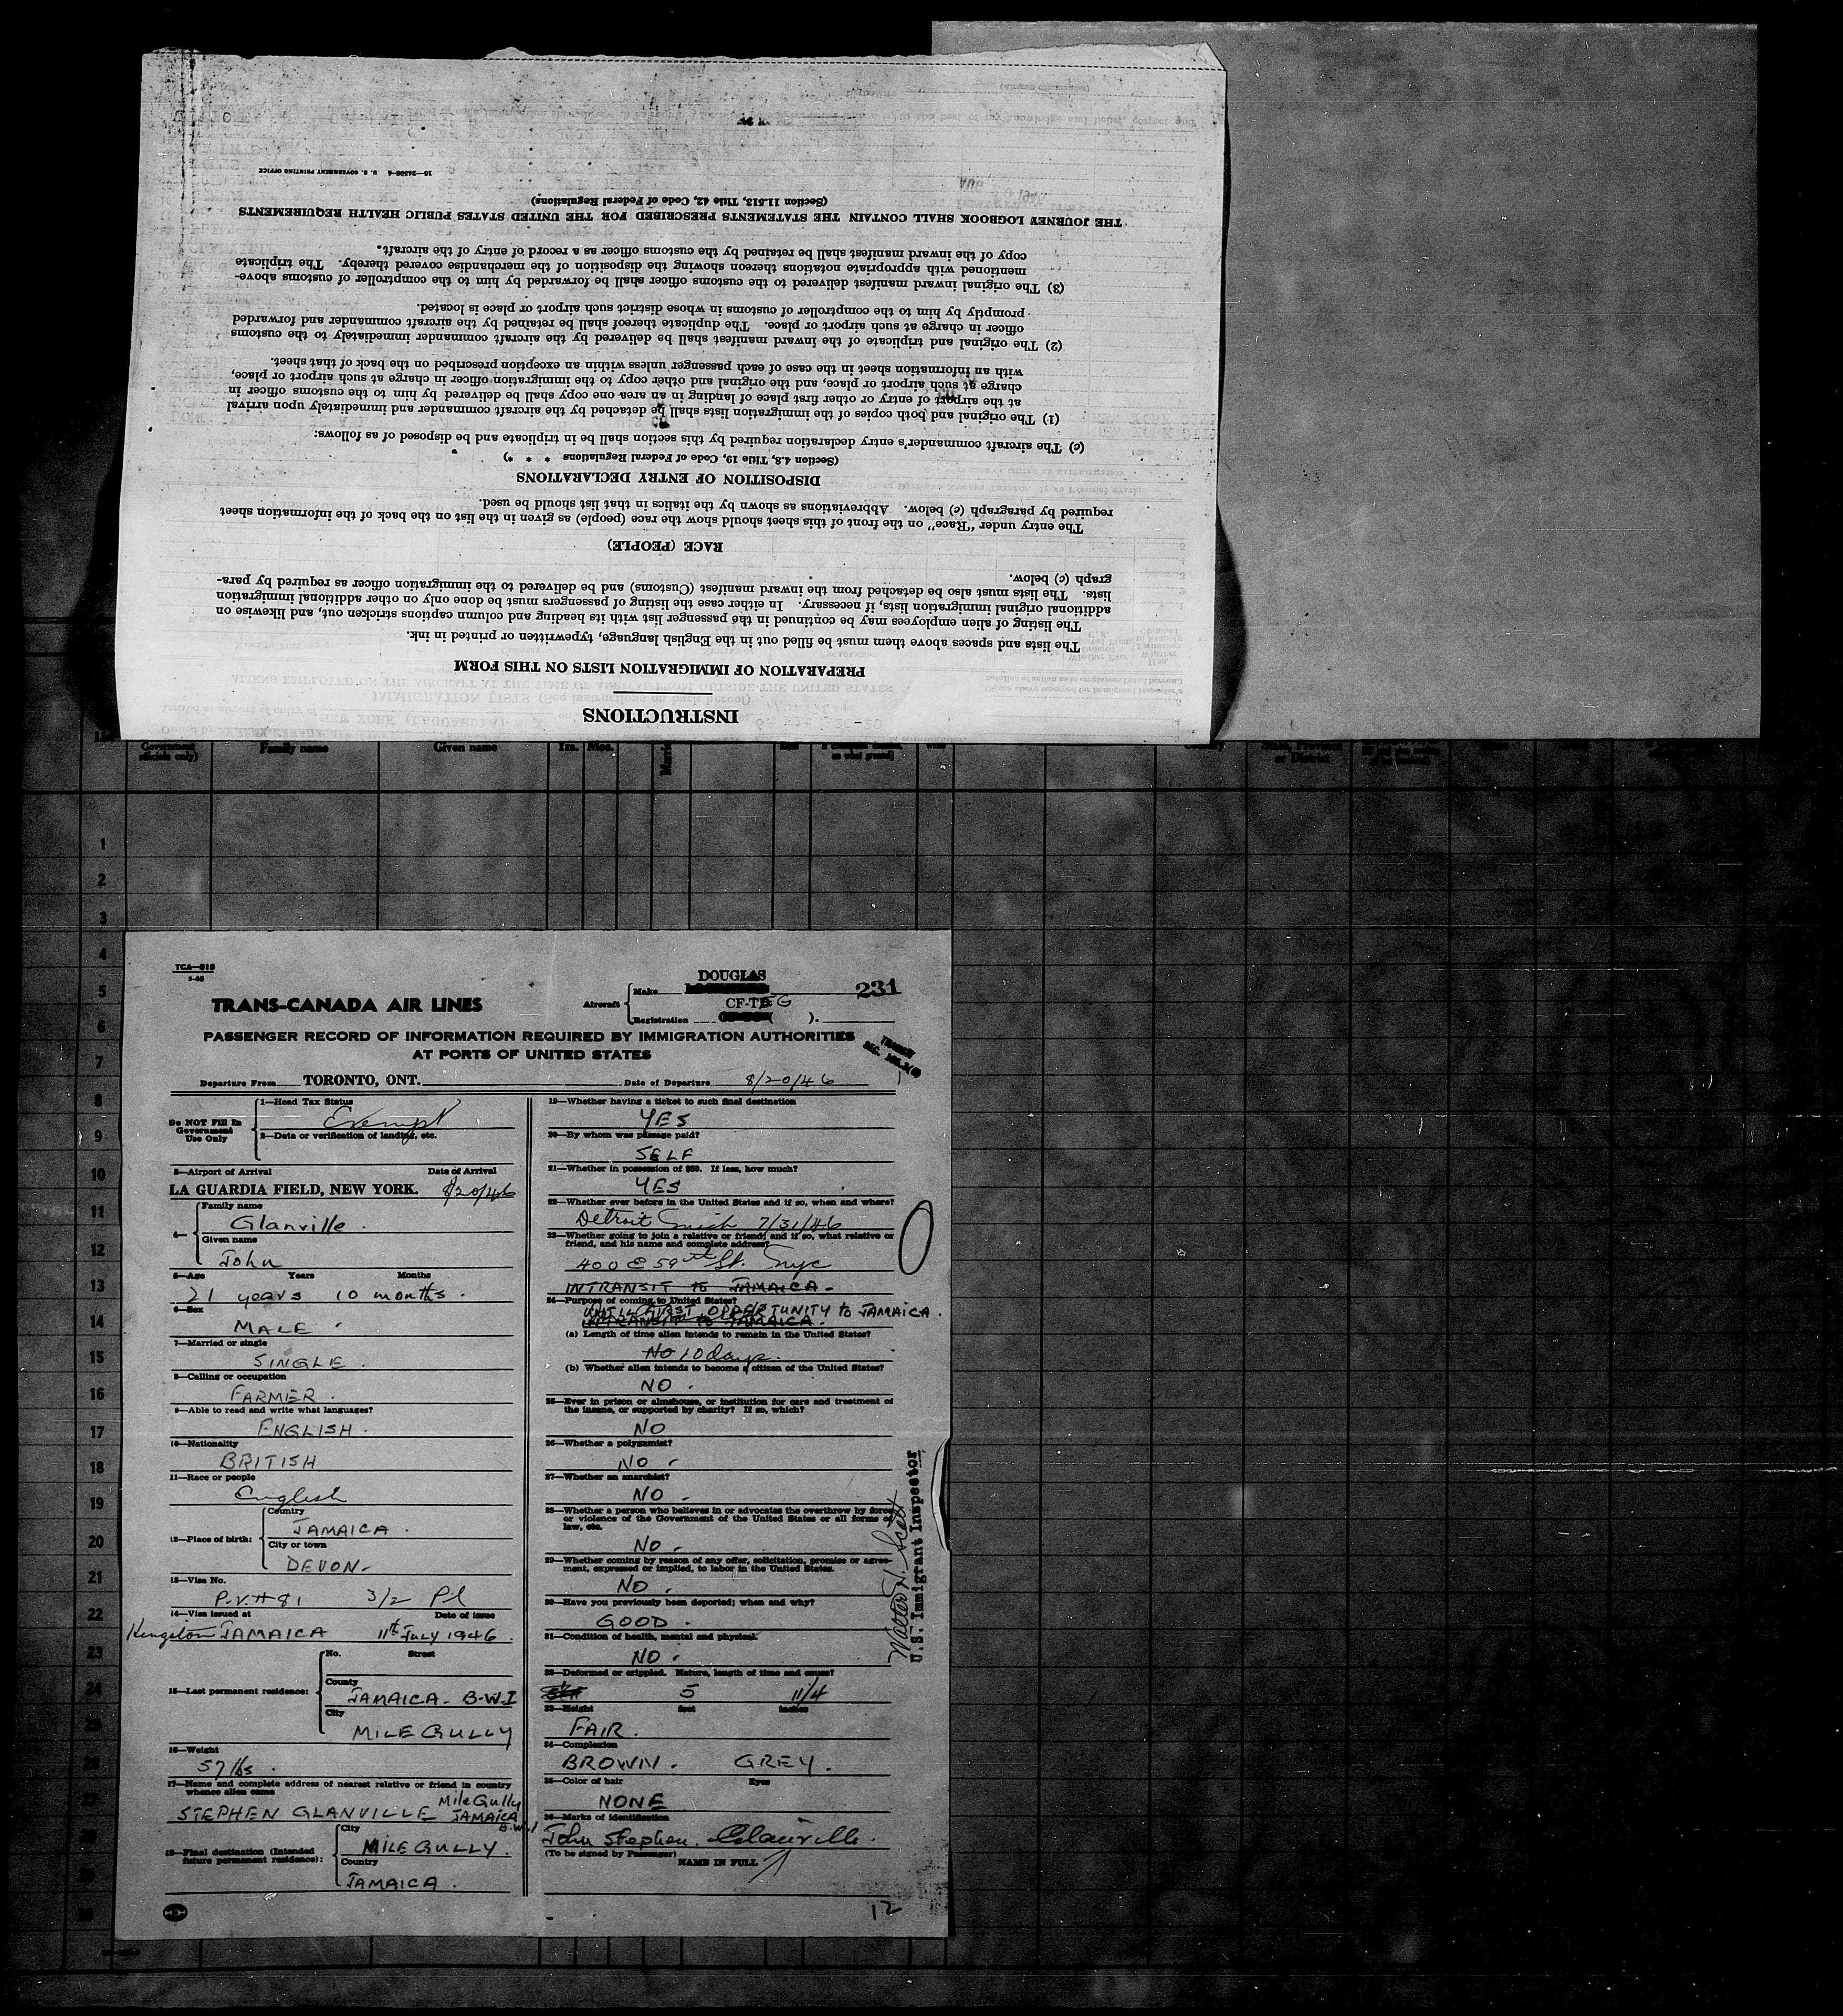 INSTRUCTIONS
PREPARATION OF IMMIGRATION LISTS ON THIS FORM
The lists and spaces above them must be filled out in the English language, typewritten or printed in ink.
The listing of alien employees may be continued in the passenger list with its heading and column captions stricken out, and likewise on
additional original immigration lists, if necessary. In either case the listing of passengers must be done only on other additional immigration
lists. The lists must also be detached from the inward manifest (Customs) and be delivered to the immigration officer as required by para-
graph (c) below.
RACE (PEOPLE)
The entry under "Race" on the front of this sheet should show the race (people) as given in the list on the back of the information sheet
required by paragraph (c) below. Abbreviations as shown by the italics in that list should be used.
DISPOSITION OF ENTRY DECLARATIONS
(Section 4.8, Title 19, Code of Federal Regulations * * *)
(c) The aircraft commander's entry declaration required by this section shall be in triplicate and be disposed of as follows:
(1) The original and both copies of the immigration lists shall be detached by the aircraft commander and immediately upon arrival
at the airport of entry or other first place of landing in an area one copy shall be delivered by him to the customs officer in
charge at such airport or place, and the original and other copy to the immigration officer in charge at such airport or place,
with an information sheet in the case of each passenger unless within an exception prescribed on the back of that sheet.
(2) The original and triplicate of the inward manifest shall be delivered by the aircraft commander immediately to the customs
officer in charge at such airport or place. The duplicate thereof shall be retained by the aircraft commander and forwarded
promptly by him to the comptroller of customs in whose district such airport or place is located.
(3) The original inward manifest delivered to the customs officer shall be forwarded by him to the comptroller of customs above-
mentioned with appropriate notations thereon showing the disposition of the merchandise covered thereby. The triplicate
copy of the inward manifest shall be retained by the customs officer as a record of entry of the aircraft.
THE JOURNEY LOGBOOK SHALL CONTAIN THE STATEMENTS PRESCRIBED FOR THE UNITED STATES PUBLIC HEALTH REQUIREMENTS
(Section 11.513, Title 42, Code of Federal Regulations)
U. S. GOVERNMENT PRINTING OFFICE
Family name Given name Yrs. Mos.
or District
1
2
3
4
5
6
7
8
9
10
11
12
13
14
15
16
17
18
19
20
21
22
23
24
25
26
27
TCA—515
TRANS-CANADA AIR LINES
Aircraft Make DOUGLAS 231
Registration CF-T G ( ).
PASSENGER RECORD OF INFORMATION REQUIRED BY IMMIGRATION AUTHORITIES
AT PORTS OF UNITED STATES
TRANSIT
Departure From TORONTO, ONT. Date of Departure 8/20/46
Do NOT Fill In Government Use Only
1—Head Tax Status
Exempt
2—Data or verification of landing, etc.
3—Airport of Arrival Date of Arrival
LA GUARDIA FIELD, NEW YORK. 8/20/46
4— Family name
Glanville.
Given name
John
5—Age Years Months
21 years 10 months.
6—Sex
MALE
7—Married or single
SINGLE.
8—Calling or occupation
FARMER.
9—Able to read and write what languages?
ENGLISH.
10—Nationality
BRITISH
11—Race or people
English
12—Place of birth: Country
JAMAICA.
City or town
DEVON-
13—Visa No.
P.V.# 81 3/2 Pl
14—Visa issued at Date of issue
Kingston JAMAICA 11th July 1946.
15—Last permanent residence: No. Street
County
JAMAICA- B-W.I
City
MILE GULLY
16—Weight
57 lbs.
17—Name and complete address of nearest relative or friend in country
whence alien came
Mile Gully
STEPHEN GLANVILLE JAMAICA
B.W.I
18—Final destination (Intended
future permanent residence): City
MILE GULLY.
Country
JAMAICA.
19—Whether having a ticket to such final destination
YES
20—By whom was passage paid?
SELF
21—Whether in possession of $50. If less, how much?
YES
22—Whether ever before in the United States and if so, when and where?
Detroit Mich 7/31/46
23—Whether going to join a relative or friend; and if so, what relative or
friend, and his name and complete address?
400 E 59th St. NYC
INTRANSIT to JAMAICA-
24—Purpose of coming to United States?
UNTIL FIRST OPPERTUNITY to JAMAICA.
INTRANSIT to JAMAICA.
(a) Length of time alien intends to remain in the United States?
NO 10 days.
(b) Whether alien intends to become a citizen of the United States?
NO.
25—Ever in prison or almshouse, or institution for care and treatment of
the insane, or supported by charity? If so, which?
NO
26—Whether a polygamist?
NO.
27—Whether an anarchist?
NO.
28—Whether a person who believes in or advocates the overthrow by force
or violence of the Government of the United States or all forms of
law, etc.
NO.
29—Whether coming by reason of any offer, solicitation, promise or agree-
ment, expressed or implied, to labor in the United States.
NO.
30—Have you previously been deported; when and why?
GOOD.
31—Condition of health, mental and physical.
NO.
32—Deformed or crippled. Nature, length of time and cause?
5 11/4
33—Height feet inches
FAIR.
34—Complexion
BROWN. GREY.
35—Color of hair Eyes
NONE
36—Marks of identification
John Stephen. Glanville.
(To be signed by Passenger)
NAME IN FULL
12
Walter H. Scott
U.S. Immigrant Inspector